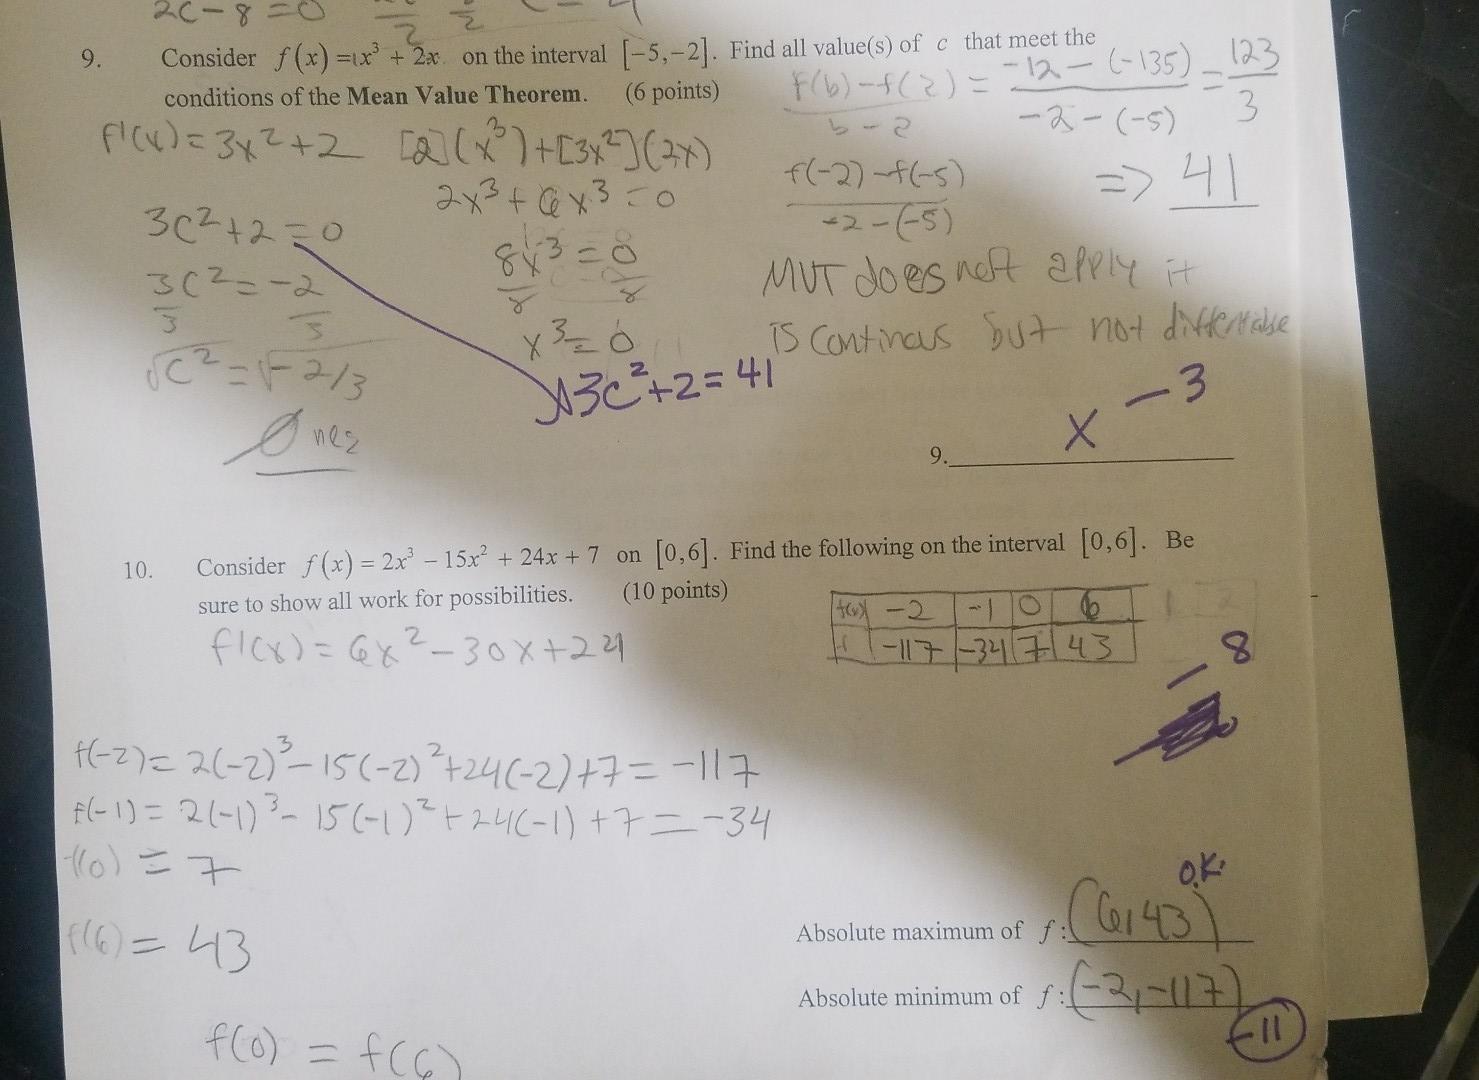 2c-8=0
9. Consider f(x)=1x³+2x on the interval [-5,-2]. Find all value(s) of c that meet the
conditions of the Mean Value Theorem. (6 points)
f(b)-f(2) = -12-(-135) = 123
b-2 -2-(-5) 3
f'(x)=3x²+2 [2](x³)+[3x²](2x)
2x³+6x³=0
f(-2)-f(-5) => 41
-2-(-5)
3c²+2=0
8x³=0
8 8
3c²=-2
3 3
MVT does not apply it
is continous but not differentiable
x³=0
√c²=√-2/3
3c²+2=41
-3
Ø
x
9.
10. Consider f(x)=2x³-15x²+24x+7 on [0,6]. Find the following on the interval [0,6]. Be
sure to show all work for possibilities. (10 points)
f(x) -2 -1 0 6
-117 -34 7 43
f'(x)=6x²-30x+24
-8
f(-2)=2(-2)³-15(-2)²+24(-2)+7=-117
f(-1)=2(-1)³-15(-1)²+24(-1)+7=-34
f(0)=7
O.K.
Absolute maximum of f: (6,43)
f(6)=43
Absolute minimum of f: (-2,-117)
-11
f(0) = f(6)